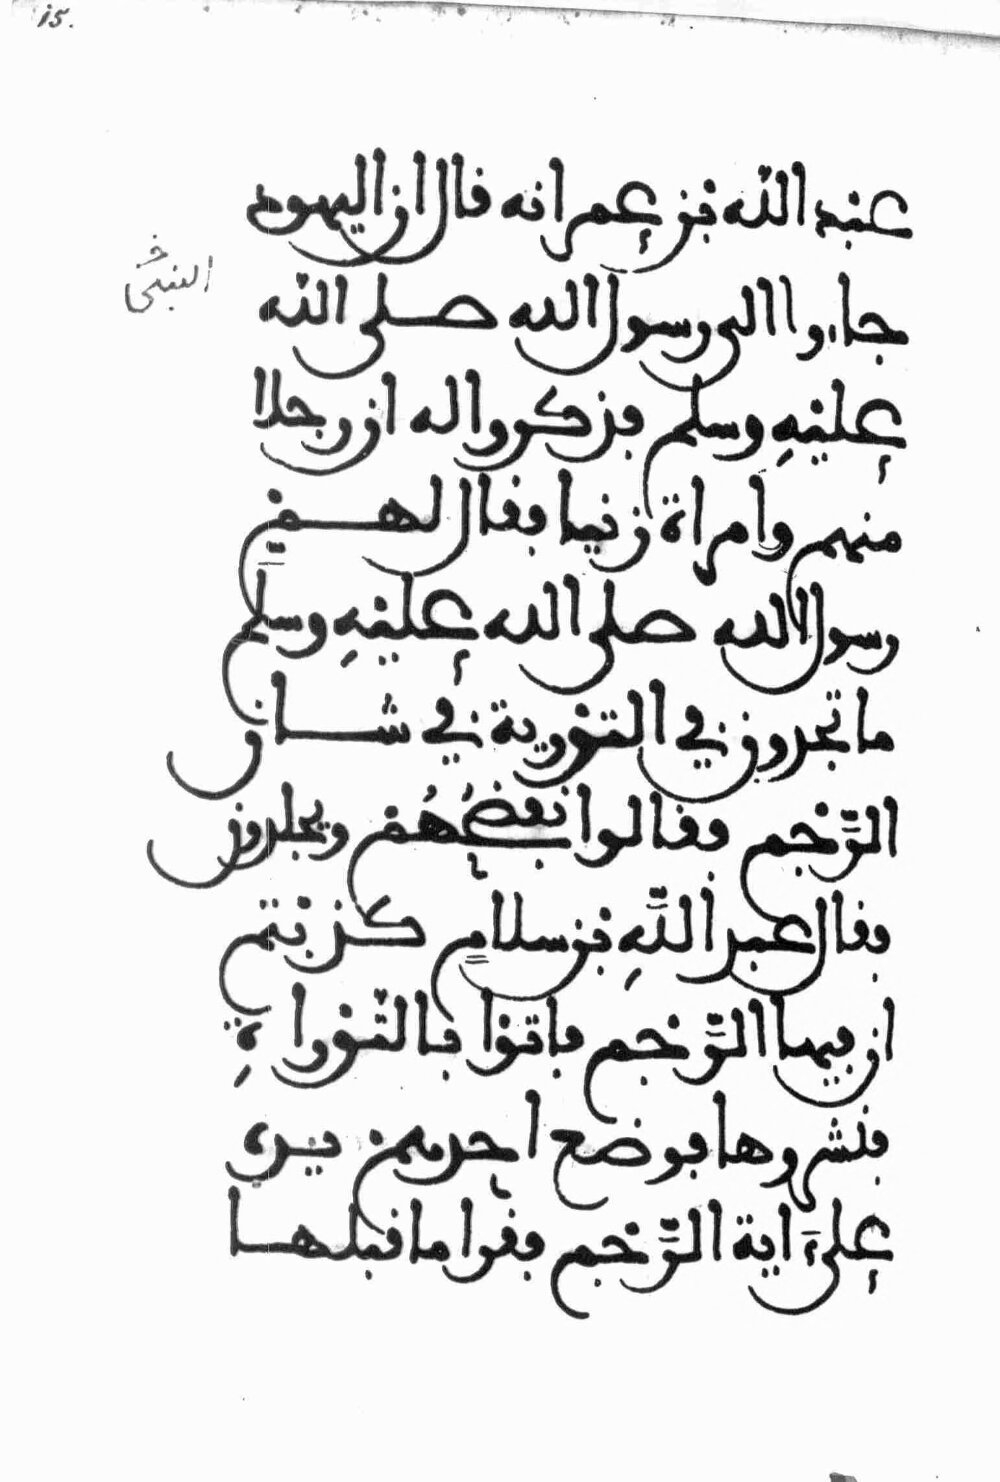 15.
عبد الله بن عمر انه قال ان اليهود
جاءوا الى رسول الله صلى الله
عليه وسلم فذكروا له ان رجلا
منهم وامراة زنيا فقال لهم
رسول الله صلى الله عليه وسلم
ما تجدون في التورية في شان
الرجم فقالوا نفضحهم ويجلدون
فقال عبد الله بن سلام كذبتم
ان فيها الرجم فاتوا بالتوراة
فنشروها فوضع احدهم يده
على اية الرجم فقرا ما قبلها